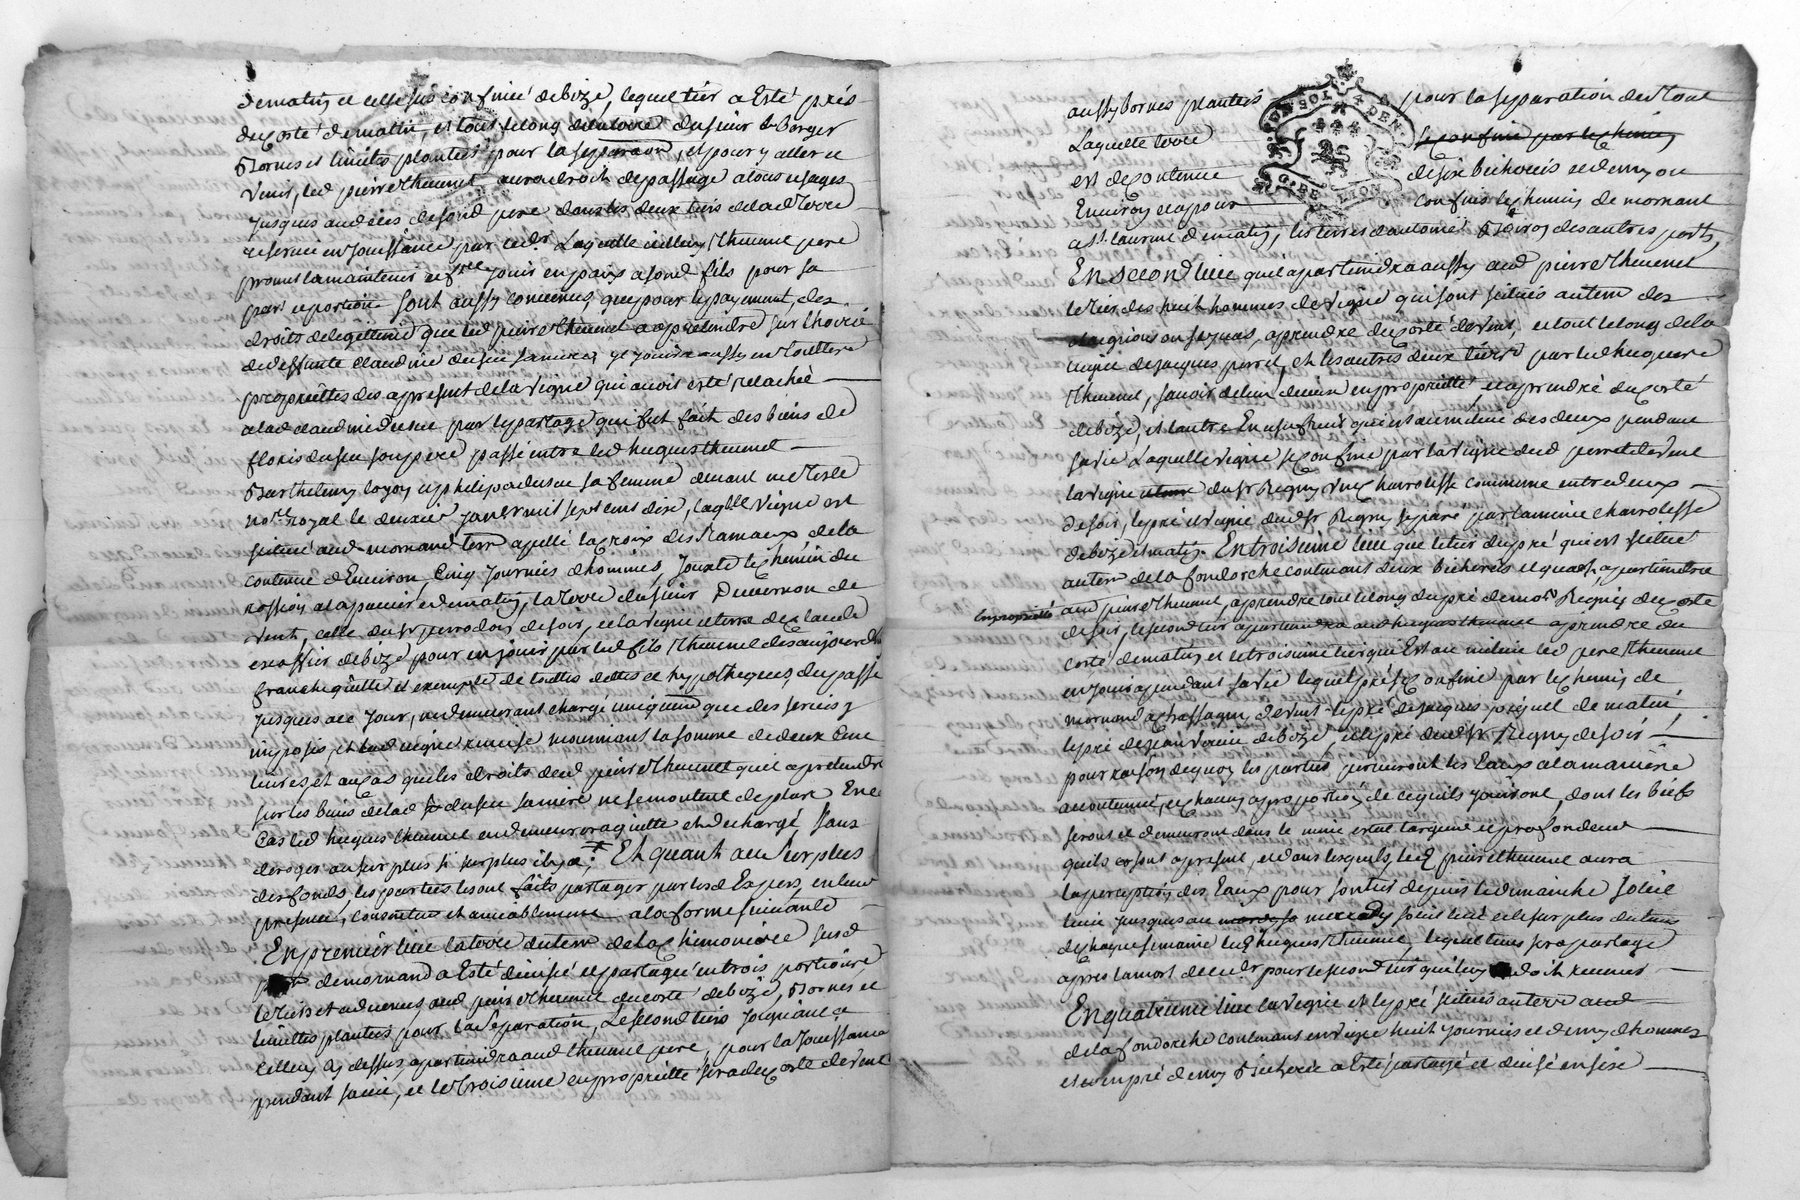 de matin et celle sus confinée de bize, lequel tier a Esté près
du costé de matin, et tout le long de la terre du sieur du Berger
Bornes et limites plantées pour la separaon, et pour y aller et
venir, led pierre Thevenet aura droit de passage a tous usages
jusques aud tiers de sond pere dans les deux tiers de lad terre
reservée en jouissance par led. Laquelle icelluy Thevenet pere
promet la maintenir et fre jouir en paix a sond fils pour sa
part et portion sont aussy convenus que pour le payement des
droits de legittime que led pierre Thevenet a a pretendre sur l'hoirie
de deffunte claudine dusieu sa mere, il jouira aussy en toutte
propriettes des a present de la vigne qui avoit esté relachée
a lad claudine dusieu par le partage qui fut fait des biens de
floris dusieu son pere passé entre led hugues thevenet
Barthelemy loyon et philipa dusieu sa femme devant me
nore royal le deuxie janvr mil sept cent dix, laqlle vigne est
scituée aud mornand terr apellé la croix des Rameaux de la
contenue d'Environ Cinq journées d'hommes, jouxte le chemin du
rossion a la pavière de matin, la terre du sieur Duvernon de
vent, celle du sr perrodon de soir, et la vigne et terre de claude
de bize, pour en jouir par led fils Thevenet des aujourdhuy
franche quitte et exempte de touttes dettes et hypotheques du passé
jusques a ce jour, ne demeurant chargé uniquemt que des servis y
imposés, et lad vigne remise moyennant la somme de deux Cent
livres, et au cas que les droits dud pierre Thevenet qu'il a pretendre
sur les biens de lad dusieu sa mere ne se montent de plus En ce
Cas led hugues thevenet en demeurera quitte et dechargé sans
deroger au surplus si surplus il y a; Et quant au Surplus
des fonds, les parties les ont faits partager par lesd Expers, en leur
presence, consentem et amiablement a la forme suivante
En premier lieu la terre du terr de la chimonière susd
de mornand a Esté divisée et partagée en trois portions
le tiers est advenus aud pierre Thevenet du costé de bize, Bornes et
limittes plantées pour la Separation, Le second tiers joignant a
celluy cy dessus apartiendra aud thevenet pere, pour la jouissance
pendant sa vie, et le troisieme en propriette sera du costé de vent
aussy bornes plantées pour la separation de tout
Laquelle terre se confine par le chemin
est de contenue de six bicherées et demy ou
Environ et a pour confins le chemin de mornant
a St laurent de matin, les terres d'antoine Beiron des autres parts,
En second lieu qu'il apartiendra aussy aud pierre Thevenet
le tier des huit hommes de vigne qui sont scitués au terr des
a prendre du costé de vent, et tout le long de la
vigne de jacques perret, et les autres deux tiers par led hugues
Thevenet, sçavoir de l'un d'eux en proprietté et a prendre du costé
de bize, et l'autre En usufruit qui est au milieu des deux pendant
sa vie Laquelle vigne se confine par la vigne dud perret de vent
la vigne du sr Regny une charrolisse commune entre deux
de soir, le pré et vigne dud sr Regny separé par la meme charrolisse
de bize et matin. En troisieme lieu que le tier du pré qui est scitué
au terr de la fondorche contenant deux bicherées et quart, apartiendra
En proprietté
aud pierre Thevenet, a prendre tout le long du pré de mor Regny du costé
de soir, le second tier apartiendra aud hugues thevenet a prendre du
costé de matin et le troisieme tier qui Est au milieu led pere Thevenet
en jouira pendant sa vie lequel pré se confine par le chemin de
mornand a chassagny de vent, le pré de jacques piquet de matin,
le pré de jean de bize, et le pré dud sr Regny de soir
pour raison de quoy les parties prendront les Eaux a la maniere
accoutumée, et chacun a proportion de ce qu'ils jouiront, dont les biefs
seront et demeuront dans le meme estat largeur et profondeur
qu'ils en sont a present, et dans lesquels led pierre thevenet aura
la perception des Eaux pour son tier depuis le dimanche soleil
levé jusques au mercredy soleil levé et le surplus du tems
de chaque semaine led hugues thevenet, lequel tems sera partagé
apres la mort de celuy pour le second tier qu'il luy doit revenir
En quatrieme lieu la vigne et le pré scitués au terre aud
de la fondorche contenant en vigne huit journées et demy d'hommes
et en pré demy Bicherée a Esté partagé et divisé en six